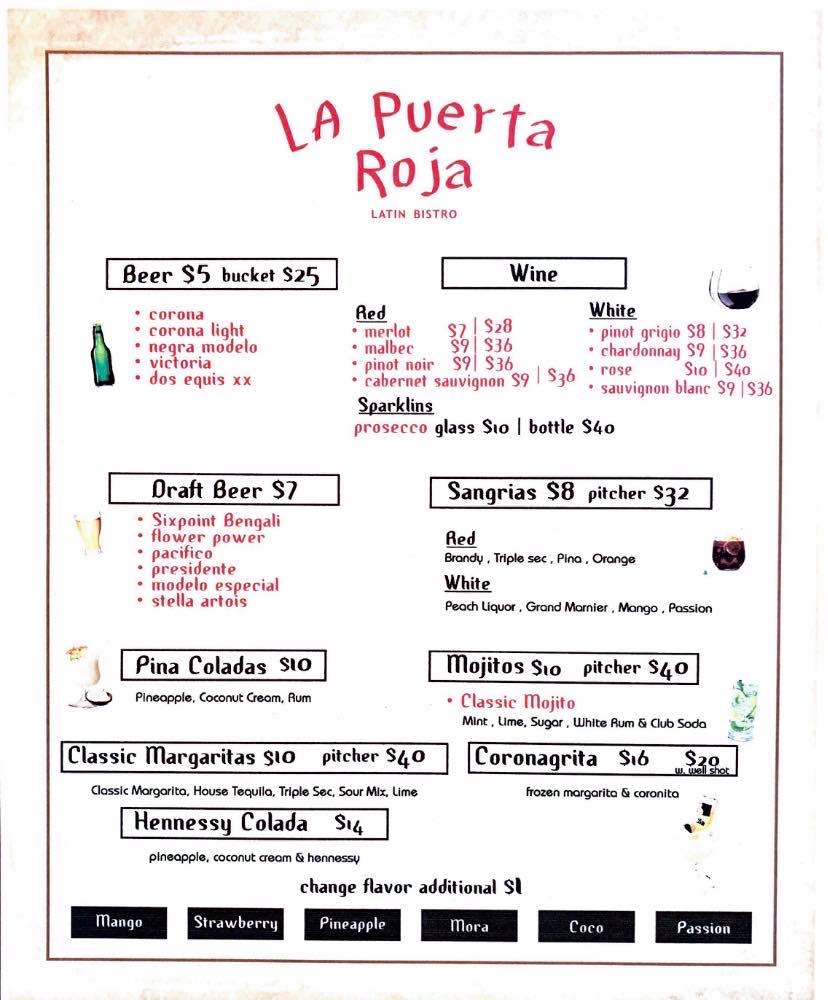 LA Puerta
Roja
LATIN BISTRO
Beer $5 bucket $25
• corona
• corona light
• negra modelo
• victoria
• dos equis xx
Wine
Red
• merlot $7 | $28
• malbec $9 | $36
• pinot noir $9 | $36
• cabernet sauvignon $9 | $36
White
• pinot grigio $8 | $32
• chardonnay $9 | $36
• rose $10 | $40
• sauvignon blanc $9 | $36
Sparklins
prosecco glass $10 | bottle $40
Draft Beer $7
• Sixpoint Bengali
• flower power
• pacifico
• presidente
• modelo especial
• stella artois
Sangrias $8 pitcher $32
Red
Brandy , Triple sec , Pina , Orange
White
Peach Liquor , Grand Marnier , Mango , Passion
Pina Coladas $10
Pineapple, Coconut Cream, Rum
Mojitos $10 pitcher $40
• Classic Mojito
Mint , Lime, Sugar , White Rum & Club Soda
Classic Margaritas $10 pitcher $40
Classic Margarita, House Tequila, Triple Sec, Sour Mix, Lime
Coronagrita $16 $20
w. well shot
frozen margarita & coronita
Hennessy Colada $14
pineapple, coconut cream & hennessy
change flavor additional $1
Mango Strawberry Pineapple Mora Coco Passion